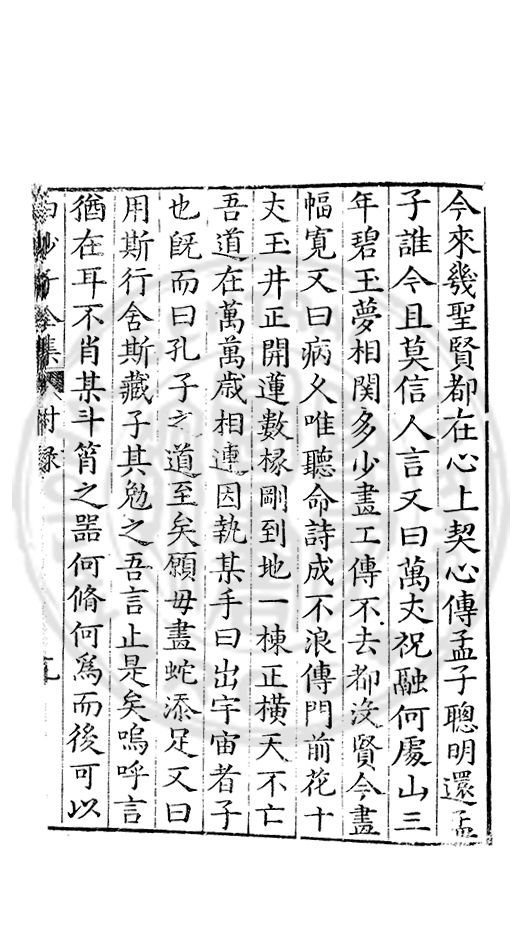 今來幾聖賢都在心上契心傳孟子聰明還孟
子誰今且莫信人言又曰萬丈祝融何處山三
年碧玉夢相關多少畫工傳不去都沒賢今畫
幅寬又曰病久唯聽命詩成不浪傳門前花十
丈玉井正開蓮數椽剛到地一棟正橫天不亡
吾道在萬萬歲相連因執某手曰出宇宙者子
也旣而曰孔子之道至矣願毋畫蛇添足又曰
用斯行舍斯藏子其勉之吾言止是矣嗚呼言
猶在耳不肖某斗筲之噐何脩何爲而後可以
白沙子全集 附錄